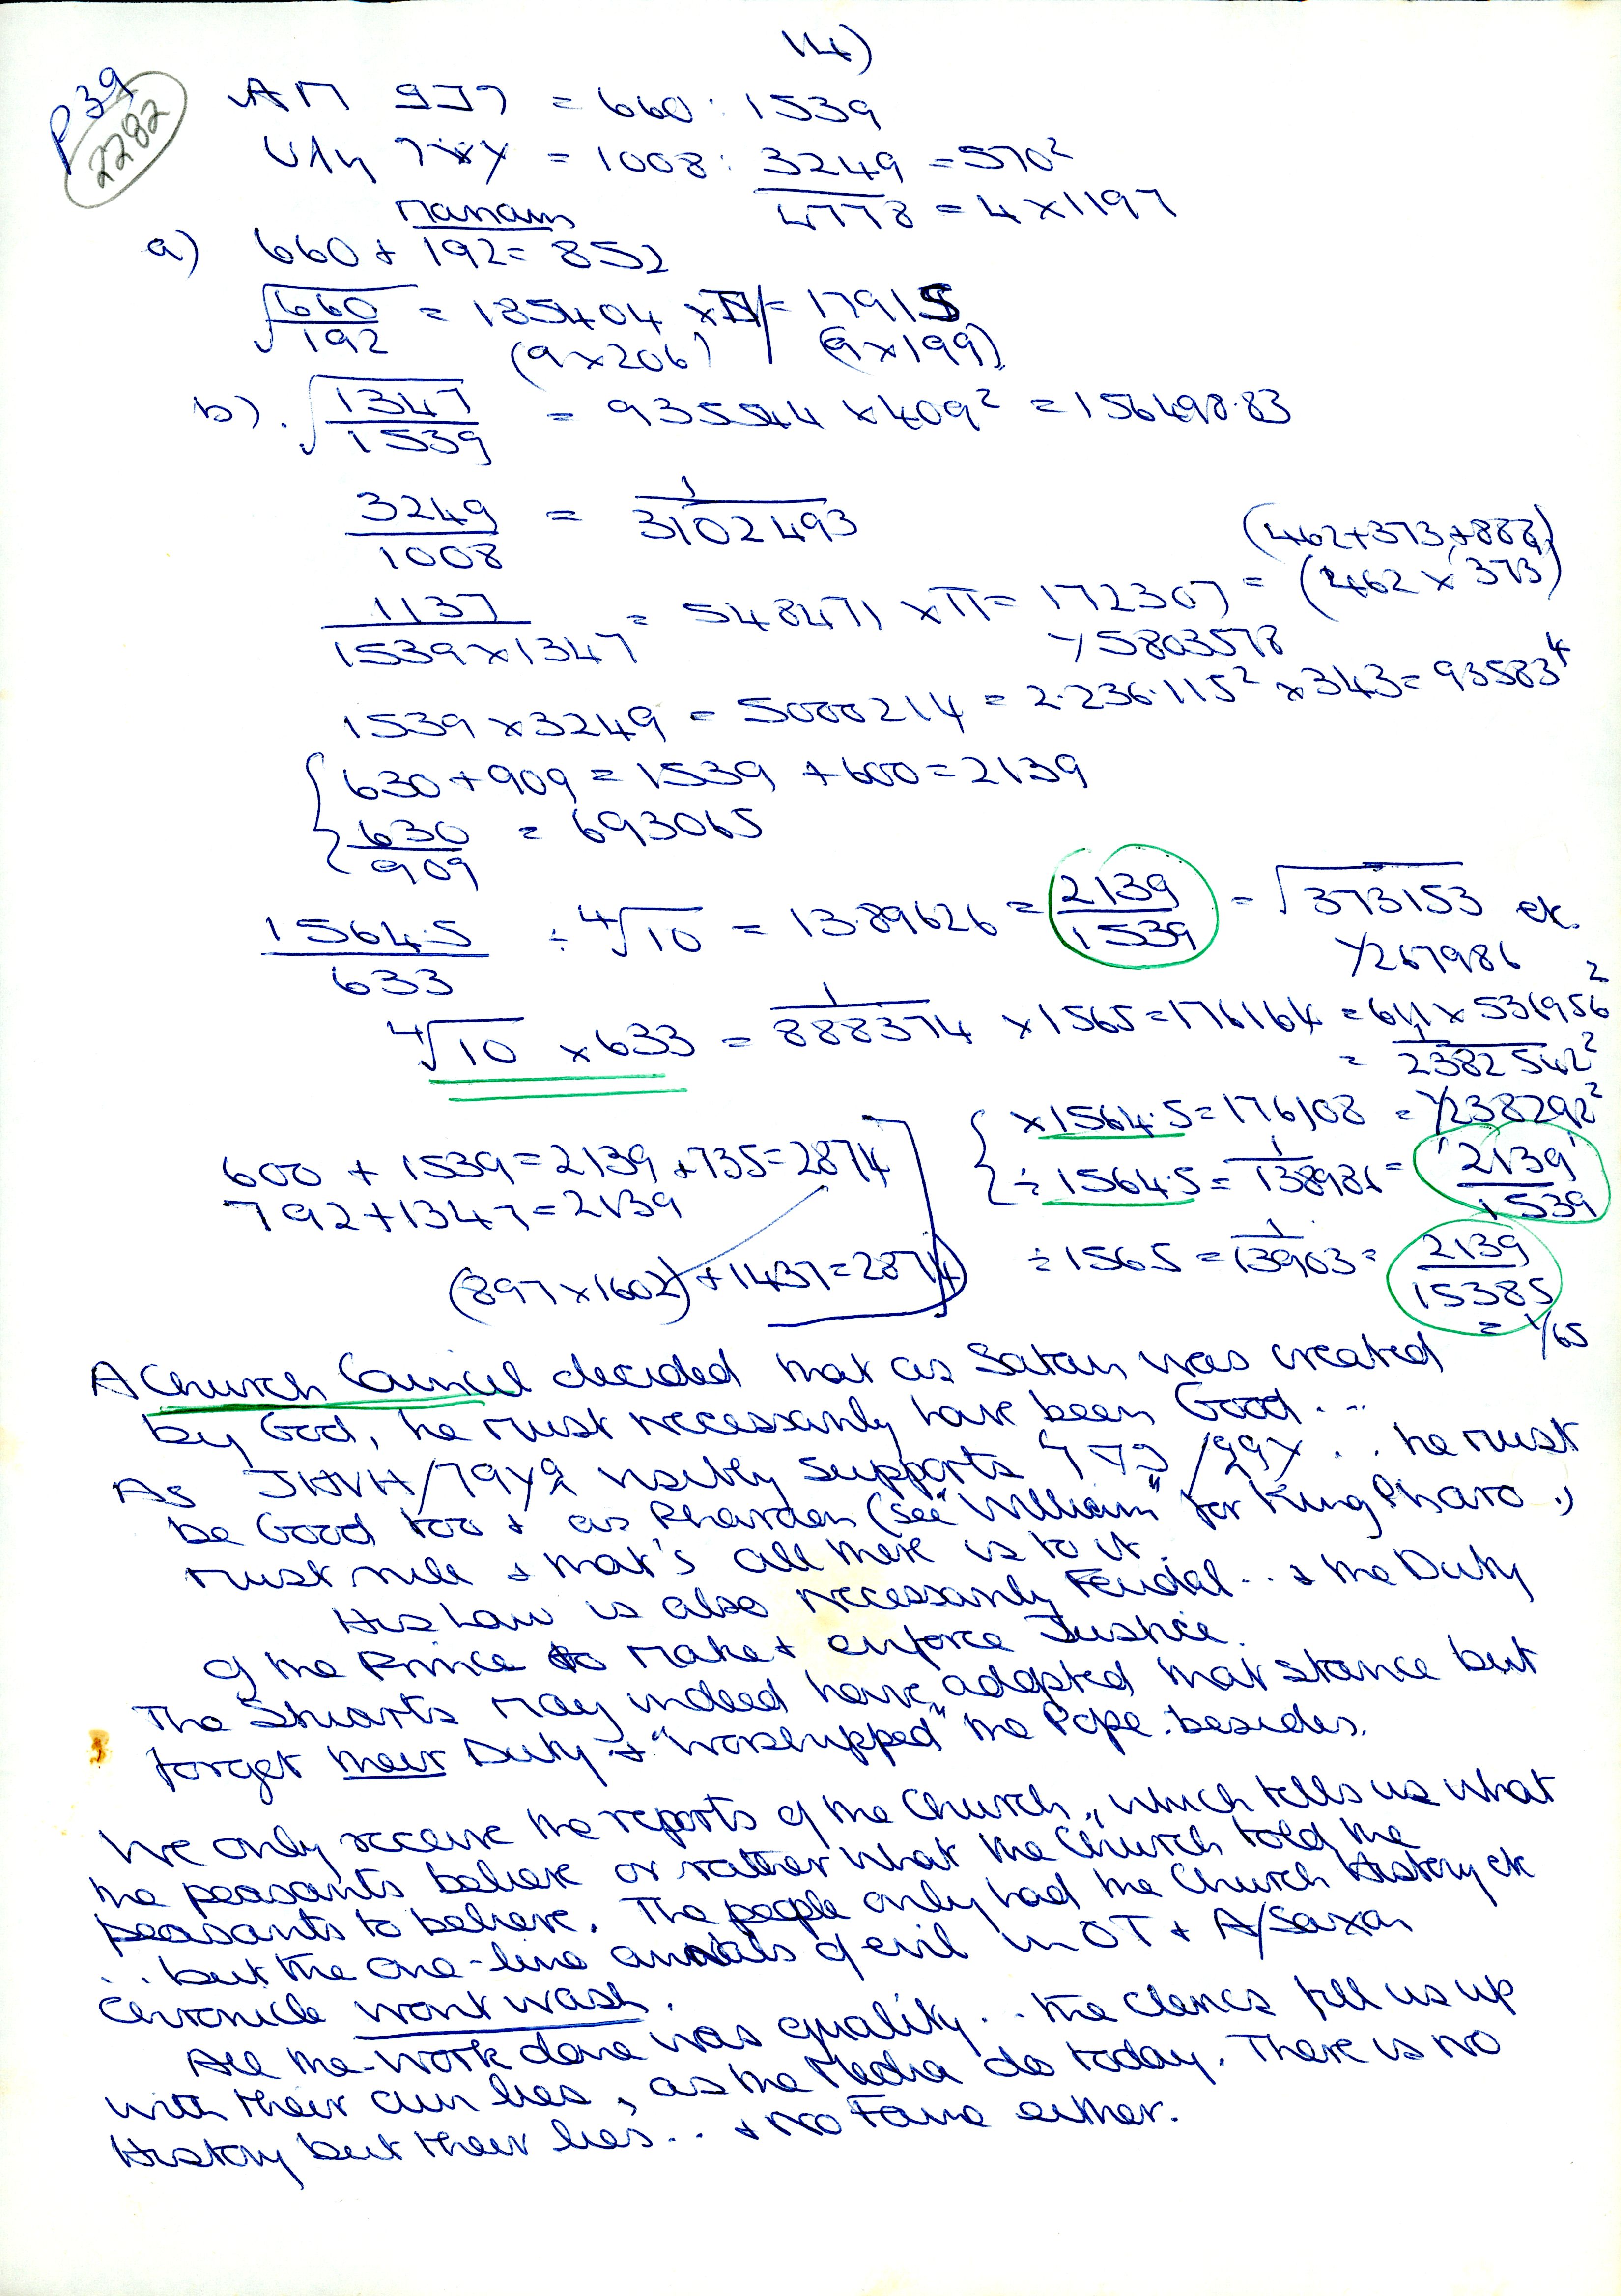 14)
P39
2282
= 660 : 1539
= 1008 : 3249 = 570²
4778 = 4 x 1197
a) 660 + 192 = 852
√660/192 = 185404 x π = 17915
(9x206) (9x199)
b) √1347/1539 = 935544 x 409² = 156498.83
3249/1008 = 1/3102493
(462+373+888)
1137/(1539x1347) = 548471 x π = 172307 = (462 x 373)
1/5803578
1539 x 3249 = 5000214 = 2.236.115² x 343 = 93583⁴
630 + 909 = 1539 + 600 = 2139
630/909 = 693065
15645/633 ÷ ⁴√10 = 1389626 = 2139/1539 = √373153 etc.
1/267986
⁴√10 x 633 = 1/888374 x 1565 = 176164 = 611 x 536956²
= 1/2382542²
x 1564.5 = 176108 = 1/238292²
600 + 1539 = 2139 + 735 = 2874
÷ 1564.5 = 1/138986 = 2139/1539
792 + 1347 = 2139
÷ 1565 = 1/13903 = 2139/15385
(897 x 1602) + 1437 = 2874
= 1/65
A Church Council decided that as Satan was created
by God, he must necessarily have been Good...
As JHVH/ visibly supports ... he must
be Good too & as Pharaon (see "William" for King Pharo.)
must rule & that's all there is to it.
His Law is also necessarily Feudal.. & the Duty
of the Prince to make & enforce Justice.
The Stuarts may indeed have adopted that stance but
forget their Duty & "worshipped" the Pope besides.
We only receive the reports of the Church, which tells us what
the peasants believe or rather what the Church told the
peasants to believe. The people only had the Church History etc
.. but the one-line annals of evil in OT & A/Saxon
Chronicle wont wash.
All the work done was quality.. the clerics fill us up
with their own lies, as the Media do today. There is no
History but their lies.. & no Fame either.